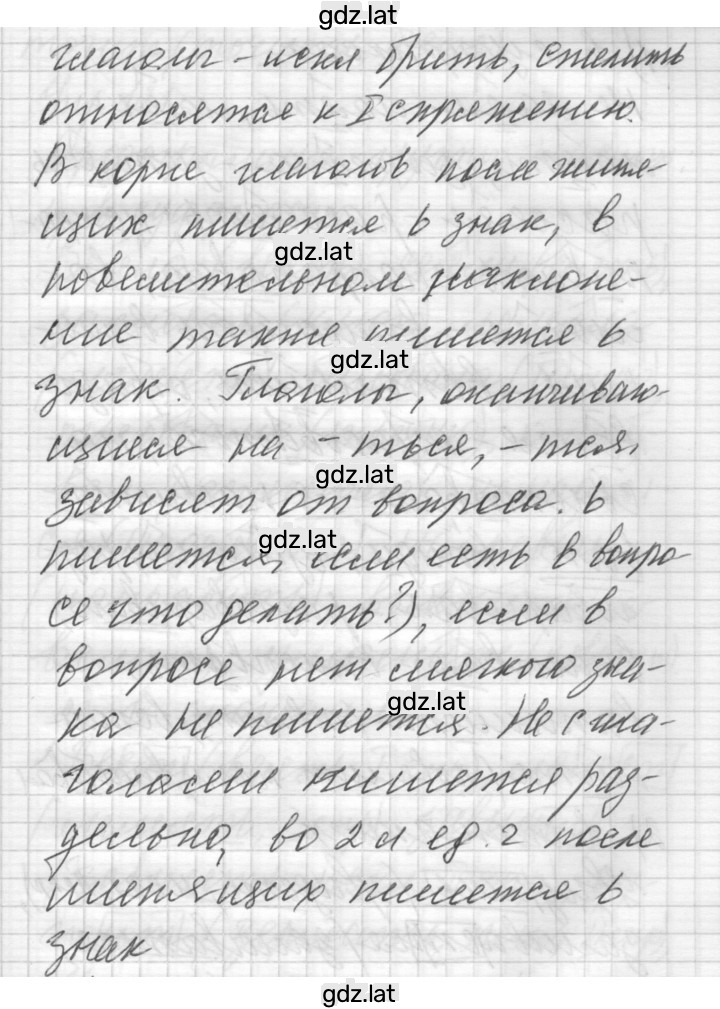 gdz.lat
глаголы - искл брить, стелить
относятся к I спряжению.
В корне глаголов после шипя-
щих пишется ь знак, в
gdz.lat
повелительном наклоне-
ние также пишется ь
gdz.lat
знак. Глаголы, оканчиваю-
щиеся на - ться, - тся,
gdz.lat
зависят от вопроса. ь
gdz.lat
пишется, если есть в вопро-
се что делать?), если в
вопросе нет мягкого зна-
gdz.lat
ка не пишется. Не с гла-
голами пишется раз-
дельно, во 2 л ед. ч после
шипящих пишется ь
знак
gdz.lat